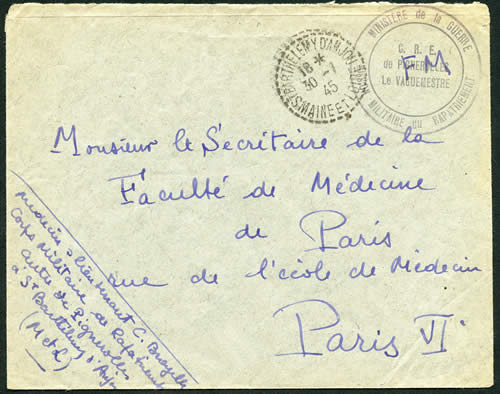 St BARTHELEMY D'ANJOU
18 *
30 - 1
45
MAINE ET LOIRE
MINISTERE de la GUERRE
C. R. E.
de PIGNEROLLES
Le VAGUEMESTRE
MILITAIRE du RAPATRIEMENT
F M
Monsieur le Secrétaire de la
Faculté de Médecine
de Paris
rue de l'école de Médecin
Paris VI
Medecin s/lieutenant C.
Corps Militaire de Rapatriement
Centre de Pignerolles
à St Barthélemy d'Anjou
(M et L)